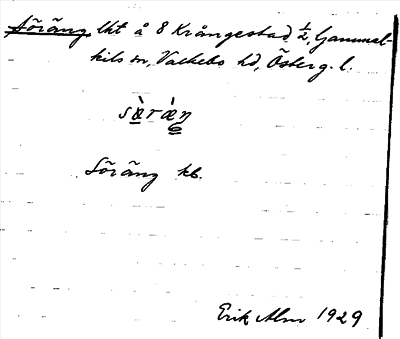 Söräng lht å 8 Krångestad ½, Gammal-
kils sn, Valkebo hd, Österg. l.
sæ̀ræ̀ŋ
Söräng kb.
Erik Alm 1929